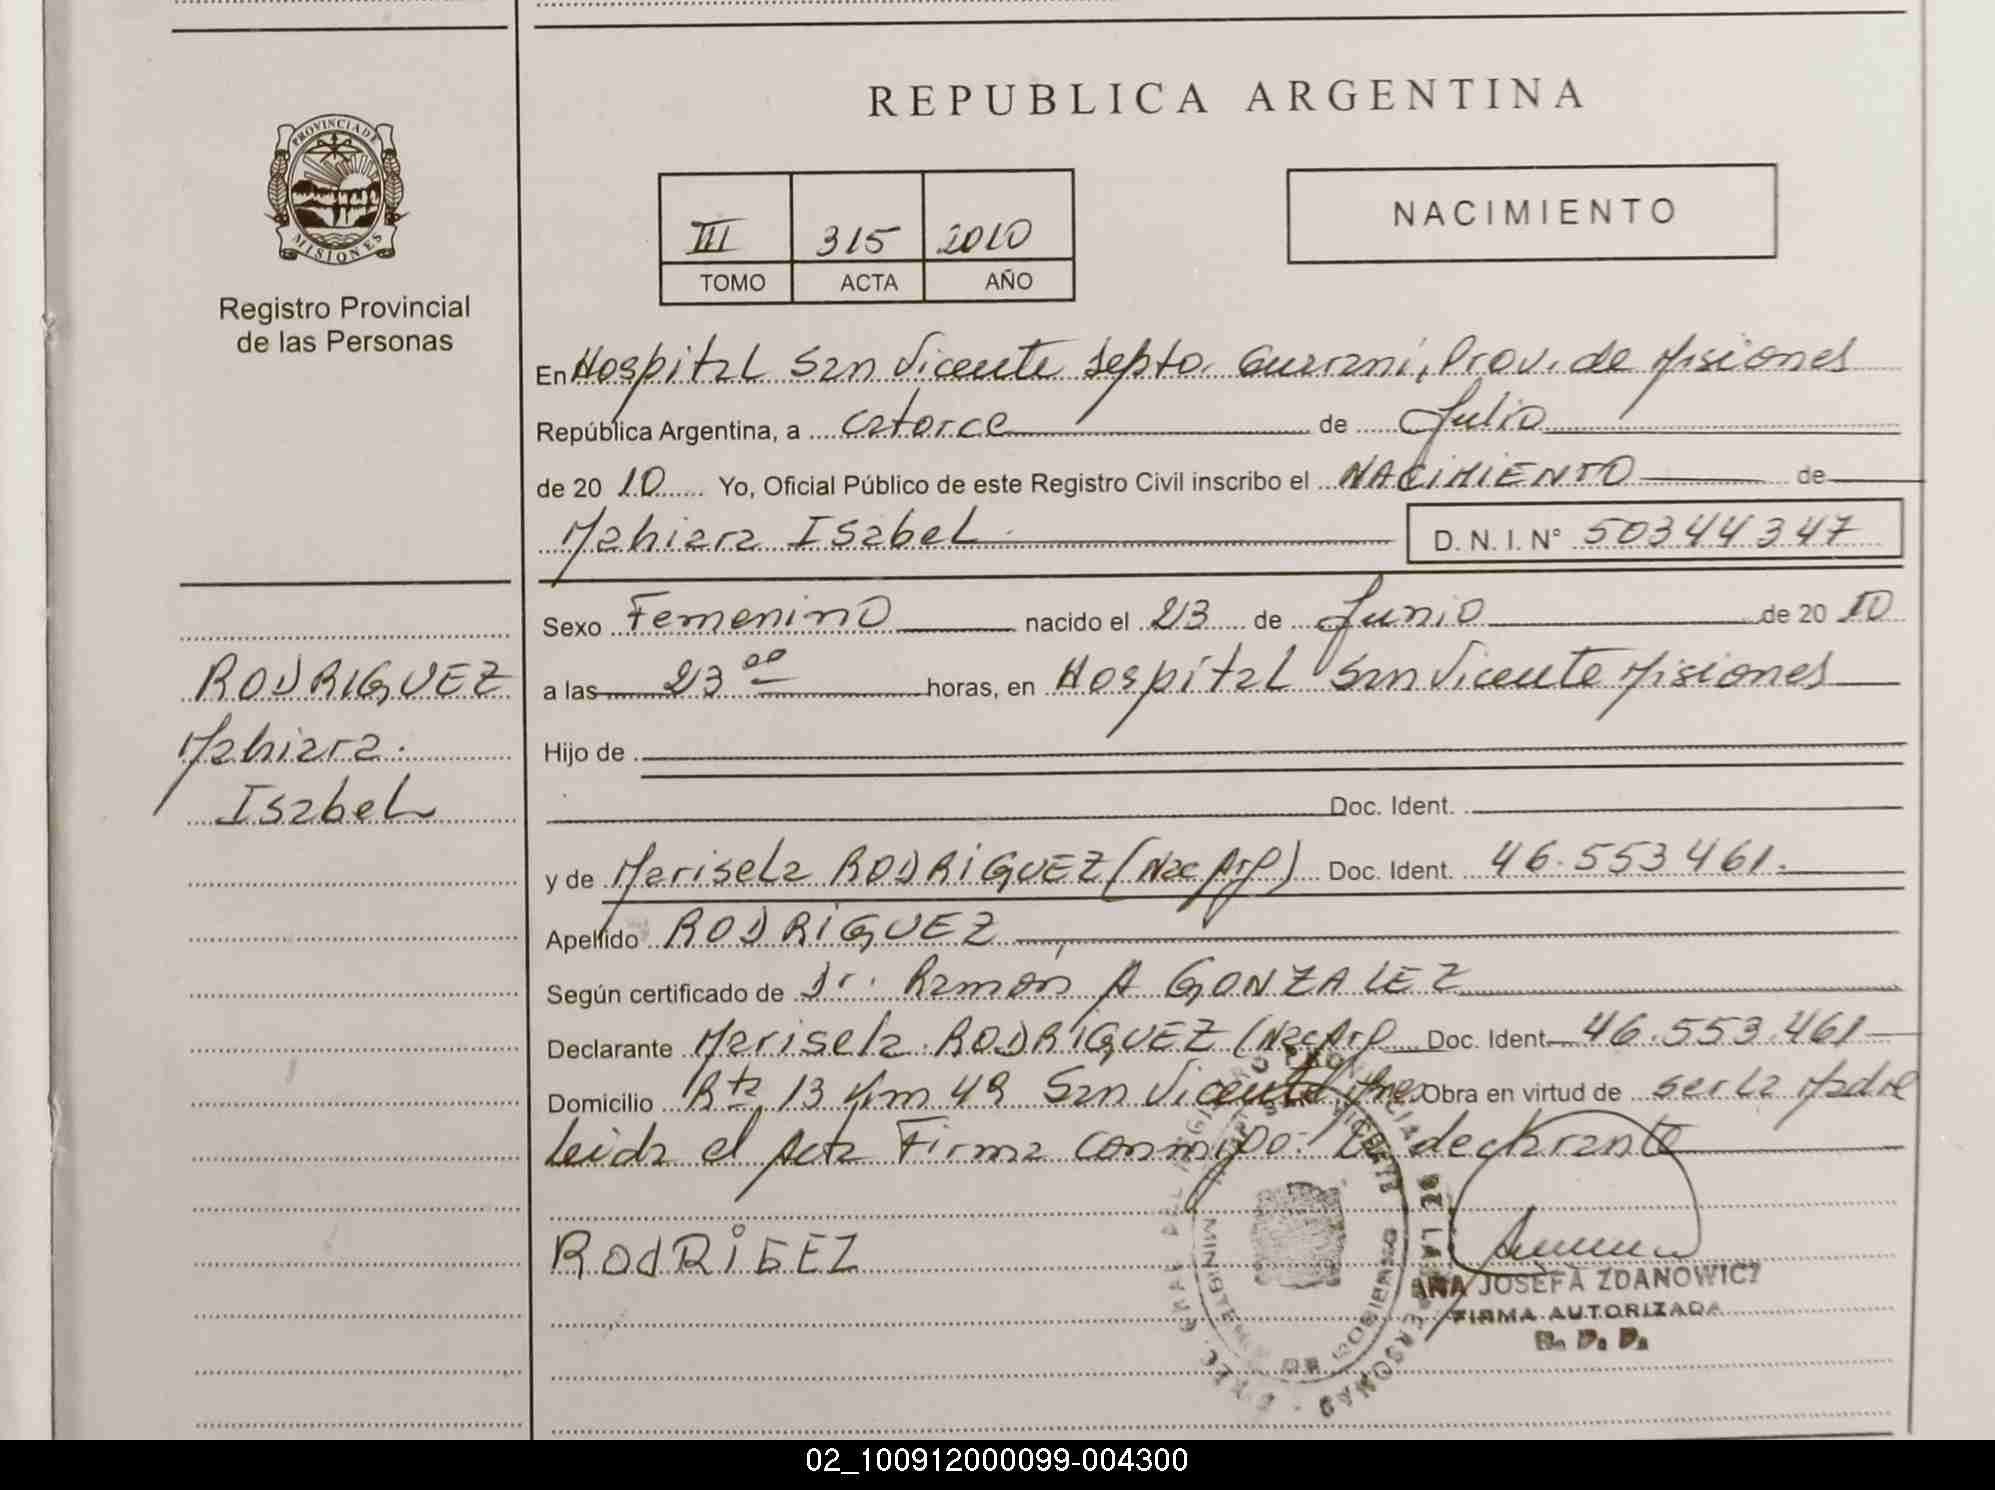 REPUBLICA ARGENTINA
PROVINCIA DE
MISIONES
Registro Provincial
de las Personas
III 315 2010
TOMO ACTA AÑO
NACIMIENTO
En Hospital San Vicente Depto. Guaraní, Prov. de Misiones
República Argentina, a catorce de Julio
de 2010 Yo, Oficial Público de este Registro Civil inscribo el NACIMIENTO de
Mahiara Isabel D. N. I. N° 50344347
Sexo Femenino nacido el 23 de Junio de 2010
a las 23 00 horas, en Hospital San Vicente Misiones
Hijo de
Doc. Ident.
y de Marisela RODRIGUEZ (Nac Arg) Doc. Ident. 46.553461.
Apellido RODRIGUEZ
Según certificado de Dr. Ramón A GONZALEZ
Declarante Marisela RODRIGUEZ (Nac Arg Doc. Ident 46.553.461
Domicilio Rta 13 Km 49 San Vicente Mnes Obra en virtud de ser la Madre
leida el Acta Firma conmigo: La declarante
RODRIGUEZ
Mahiara
Isabel
RodRiGEZ
ANA JOSEFA ZDANOWICZ
FIRMA AUTORIZADA
R. P. P.
02_100912000099-004300